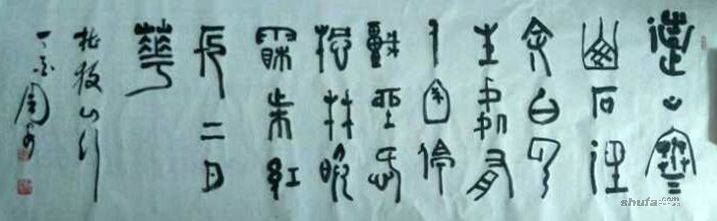 遠上寒
山石徑
斜白雲
生處有
人家停
車坐愛
楓林晚
霜葉紅
於二月
華
杜牧山行
丁亥周
shufa.com